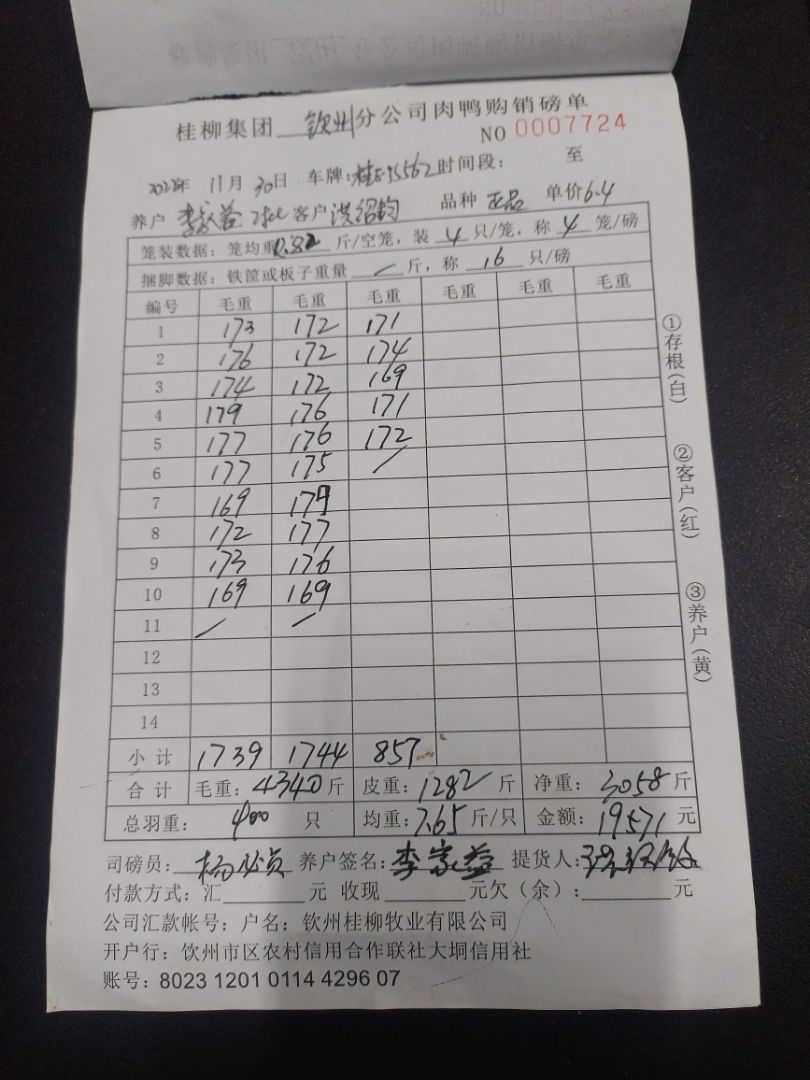 桂柳集团 钦州 分公司肉鸭购销磅单
NO 0007724
11月 30日 车牌: 时间段: 至
养户 李家益 客户 洪绍钧 品种 正品 单价 6.4
笼装数据: 笼均重 斤/空笼, 装 4 只/笼, 称 4 笼/磅
捆脚数据: 铁筐或板子重量 / 斤, 称 16 只/磅
编号 毛重 毛重 毛重 毛重 毛重 毛重
1 173 172 171
2 176 172 174
3 174 172 169
4 179 176 171
5 177 176 172
6 177 175 /
7 169 179
8 172 177
9 173 176
10 169 169
11 / /
12
13
14
小计 1739 1744 857
合计 毛重: 4340 斤 皮重: 1282 斤 净重: 3058 斤
总羽重: 400 只 均重: 7.65 斤/只 金额: 19571 元
司磅员: 养户签名: 李家益 提货人:
付款方式: 汇 元 收现 元欠(余): 元
公司汇款帐号: 户名: 钦州桂柳牧业有限公司
开户行: 钦州市区农村信用合作联社大垌信用社
账号: 8023 1201 0114 4296 07
①存根(白)
②客户(红)
③养户(黄)